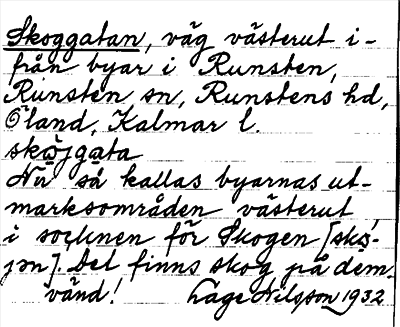 Skoggatan, väg västerut i-
från byar i Runsten,
Runsten sn, Runstens hd,
Öland, Kalmar l.
skǫ̈jgata
Nu så kallas byarnas ut-
marksområden västerut
i socknen för Skogen [skǫ-
jən]. Det finns skog på dem.
vänd! Lage Nilsson 1932